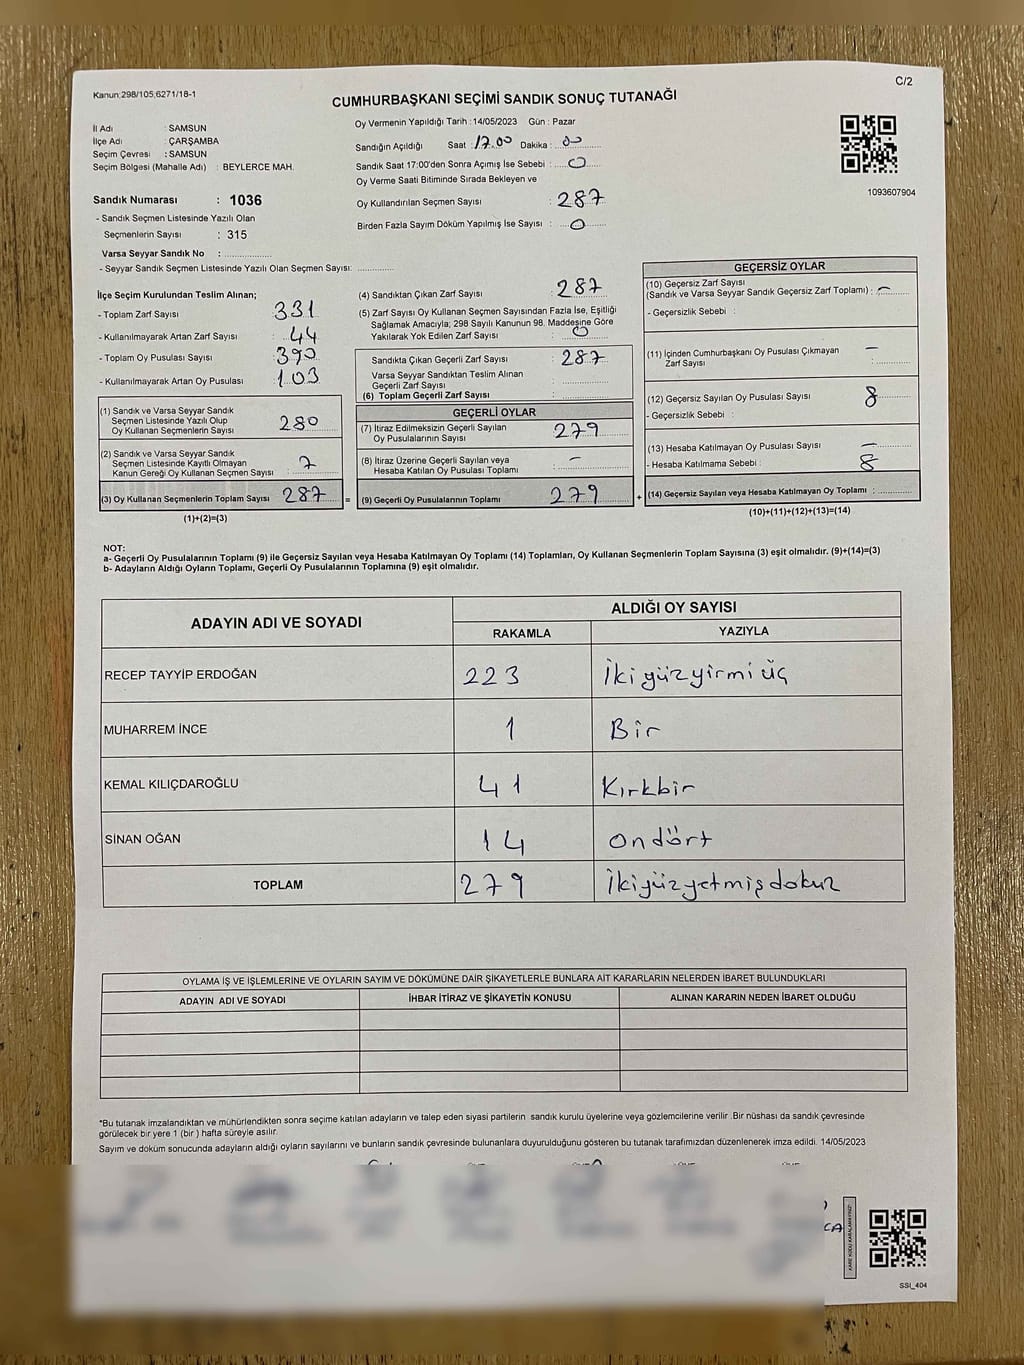 Kanun:298/105;6271/18-1
C/2
CUMHURBAŞKANI SEÇİMİ SANDIK SONUÇ TUTANAĞI
İl Adı : SAMSUN
İlçe Adı : ÇARŞAMBA
Seçim Çevresi : SAMSUN
Seçim Bölgesi (Mahalle Adı) : BEYLERCE MAH.
Sandık Numarası : 1036
- Sandık Seçmen Listesinde Yazılı Olan
Seçmenlerin Sayısı : 315
Varsa Seyyar Sandık No :
- Seyyar Sandık Seçmen Listesinde Yazılı Olan Seçmen Sayısı:
Oy Vermenin Yapıldığı Tarih :14/05/2023 Gün : Pazar
Sandığın Açıldığı Saat : 17.00 Dakika : 00
Sandık Saat 17:00'den Sonra Açımış İse Sebebi : 0
Oy Verme Saati Bitiminde Sırada Bekleyen ve
Oy Kullandırılan Seçmen Sayısı : 287
Birden Fazla Sayım Döküm Yapılmış İse Sayısı : 0
1093607904
İlçe Seçim Kurulundan Teslim Alınan;
- Toplam Zarf Sayısı : 331
- Kullanılmayarak Artan Zarf Sayısı : 44
- Toplam Oy Pusulası Sayısı : 390
- Kullanılmayarak Artan Oy Pusulası : 103
(1) Sandık ve Varsa Seyyar Sandık
Seçmen Listesinde Yazılı Olup
Oy Kullanan Seçmenlerin Sayısı : 280
(2) Sandık ve Varsa Seyyar Sandık
Seçmen Listesinde Kayıtlı Olmayan
Kanun Gereği Oy Kullanan Seçmen Sayısı : 7
(3) Oy Kullanan Seçmenlerin Toplam Sayısı : 287 =
(1)+(2)=(3)
(4) Sandıktan Çıkan Zarf Sayısı : 287
(5) Zarf Sayısı Oy Kullanan Seçmen Sayısından Fazla İse, Eşitliği
Sağlamak Amacıyla; 298 Sayılı Kanunun 98. Maddesine Göre
Yakılarak Yok Edilen Zarf Sayısı : 0
Sandıkta Çıkan Geçerli Zarf Sayısı : 287
Varsa Seyyar Sandıktan Teslim Alınan
Geçerli Zarf Sayısı :
(6) Toplam Geçerli Zarf Sayısı :
GEÇERLİ OYLAR
(7) İtiraz Edilmeksizin Geçerli Sayılan
Oy Pusulalarının Sayısı : 279
(8) İtiraz Üzerine Geçerli Sayılan veya
Hesaba Katılan Oy Pusulası Toplamı : -
(9) Geçerli Oy Pusulalarının Toplamı : 279 +
GEÇERSİZ OYLAR
(10) Geçersiz Zarf Sayısı
(Sandık ve Varsa Seyyar Sandık Geçersiz Zarf Toplamı) : -
- Geçersizlik Sebebi :
(11) İçinden Cumhurbaşkanı Oy Pusulası Çıkmayan
Zarf Sayısı : -
(12) Geçersiz Sayılan Oy Pusulası Sayısı : 8
- Geçersizlik Sebebi :
(13) Hesaba Katılmayan Oy Pusulası Sayısı : -
- Hesaba Katılmama Sebebi : 8
(14) Geçersiz Sayılan veya Hesaba Katılmayan Oy Toplamı :
(10)+(11)+(12)+(13)=(14)
NOT:
a- Geçerli Oy Pusulalarının Toplamı (9) ile Geçersiz Sayılan veya Hesaba Katılmayan Oy Toplamı (14) Toplamları, Oy Kullanan Seçmenlerin Toplam Sayısına (3) eşit olmalıdır. (9)+(14)=(3)
b- Adayların Aldığı Oyların Toplamı, Geçerli Oy Pusulalarının Toplamına (9) eşit olmalıdır.
ADAYIN ADI VE SOYADI ALDIĞI OY SAYISI
RAKAMLA YAZIYLA
RECEP TAYYİP ERDOĞAN 223 İkiyüzyirmiüç
MUHARREM İNCE 1 Bir
KEMAL KILIÇDAROĞLU 41 Kırkbir
SİNAN OĞAN 14 ondört
TOPLAM 279 İkiyüzyetmişdokuz
OYLAMA İŞ VE İŞLEMLERİNE VE OYLARIN SAYIM VE DÖKÜMÜNE DAİR ŞİKAYETLERLE BUNLARA AİT KARARLARIN NELERDEN İBARET BULUNDUKLARI
ADAYIN ADI VE SOYADI İHBAR İTİRAZ VE ŞİKAYETİN KONUSU ALINAN KARARIN NEDEN İBARET OLDUĞU
*Bu tutanak imzalandıktan ve mühürlendikten sonra seçime katılan adayların ve talep eden siyasi partilerin sandık kurulu üyelerine veya gözlemcilerine verilir .Bir nüshası da sandık çevresinde
görülecek bir yere 1 (bir ) hafta süreyle asılır.
Sayım ve döküm sonucunda adayların aldığı oyların sayılarını ve bunların sandık çevresinde bulunanlara duyurulduğunu gösteren bu tutanak tarafımızdan düzenlenerek imza edildi. 14/05/2023
CA
KARE KODU KARALAMAYINIZ!
SSI_404